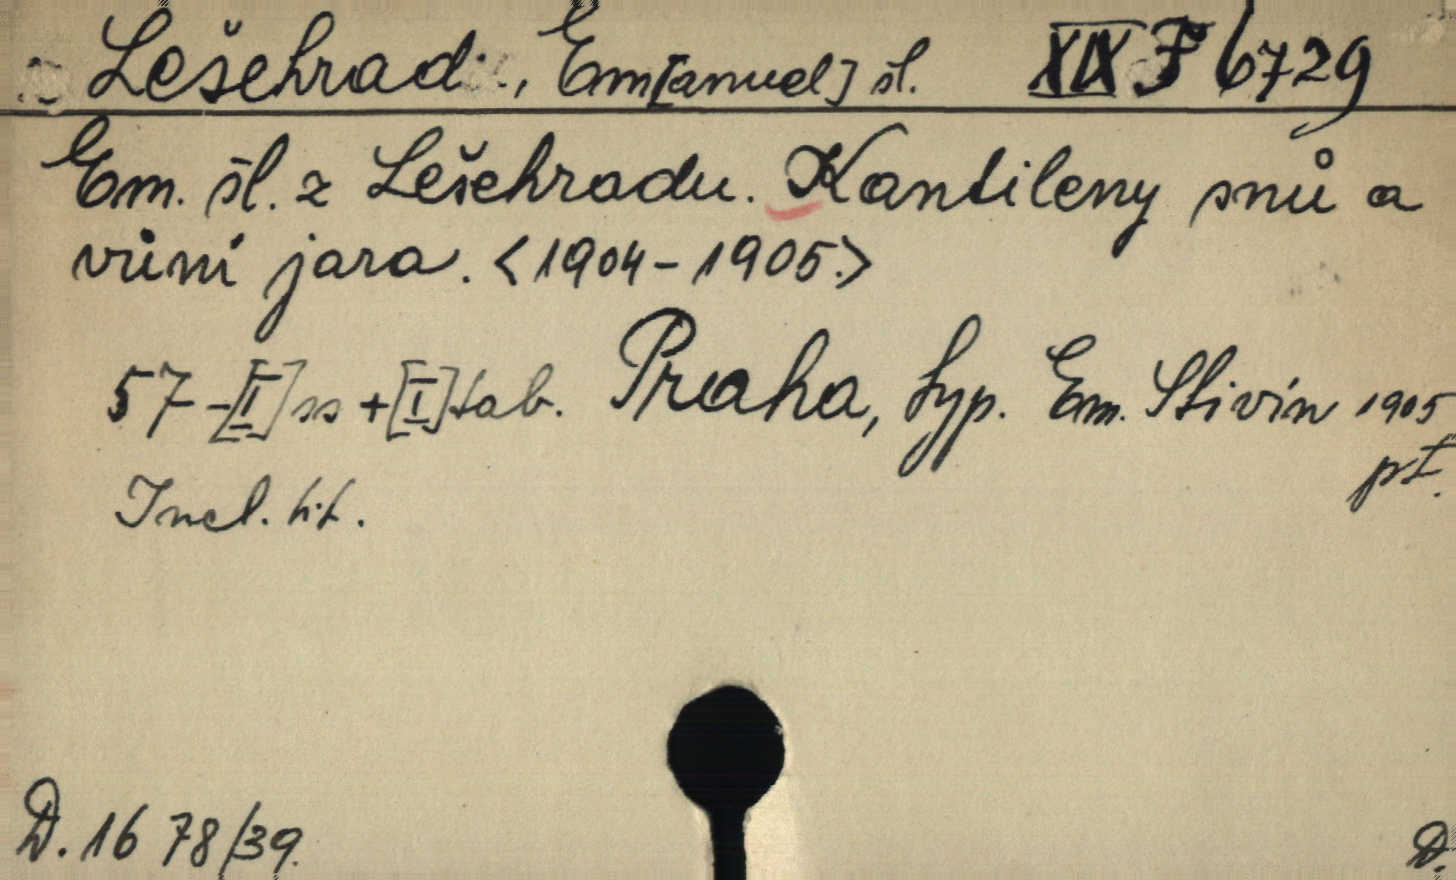 Lešehrad, Em[anuel] šl. XIX F 6729
Em. šl. z Lešehradu. Kantileny snů a
vůní jara. <1904-1905.>
57-[I] ss +[I] tab. Praha, typ. Em. Stivín 1905
Incl. tit.
D. 1678/39.
D.